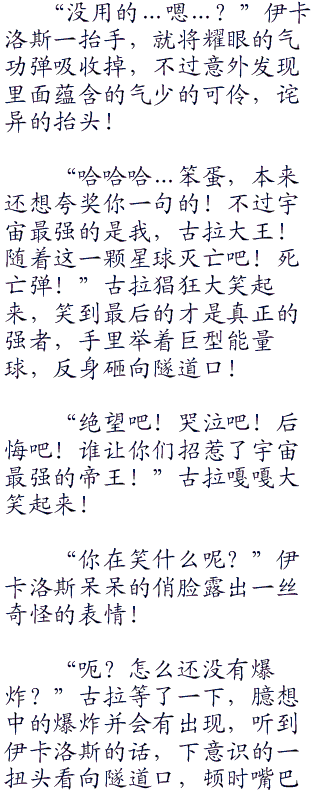 “没用的…嗯…？”伊卡
洛斯一抬手，就将耀眼的气
功弹吸收掉，不过意外发现
里面蕴含的气少的可伶，诧
异的抬头！
“哈哈哈…笨蛋，本来
还想夸奖你一句的！不过宇
宙最强的是我，古拉大王！
随着这一颗星球灭亡吧！死
亡弹！”古拉猖狂大笑起
来，笑到最后的才是真正的
强者，手里举着巨型能量
球，反身砸向隧道口！
“绝望吧！哭泣吧！后
悔吧！谁让你们招惹了宇宙
最强的帝王！”古拉嘎嘎大
笑起来！
“你在笑什么呢？”伊
卡洛斯呆呆的俏脸露出一丝
奇怪的表情！
“呃？怎么还没有爆
炸？”古拉等了一下，臆想
中的爆炸并会有出现，听到
伊卡洛斯的话，下意识的一
扭头看向隧道口，顿时嘴巴